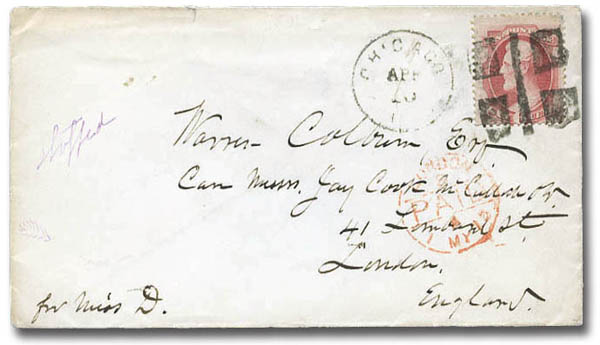 CHICAGO
APR
Warren Colburn, Esq.
Care Messrs. Jay Cook McCulloch & Co.
LONDON
PAID
MY
41 Lombard St.
London,
England.
for Miss D.